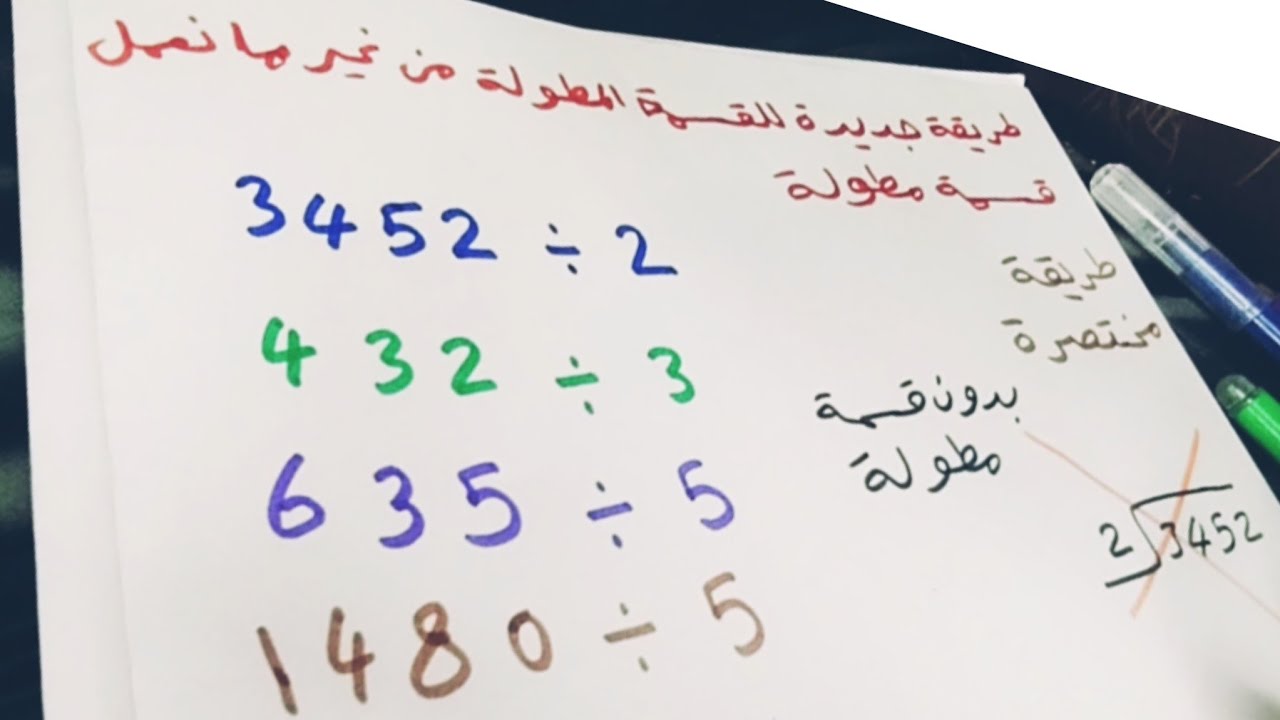 طريقة جديدة للقسمة المطولة من غير ما نعمل
قسمة مطولة
3452 ÷ 2
طريقة
مختصرة
432 ÷ 3
بدون قسمة
مطولة
635 ÷ 5
2 3452
1480 ÷ 5